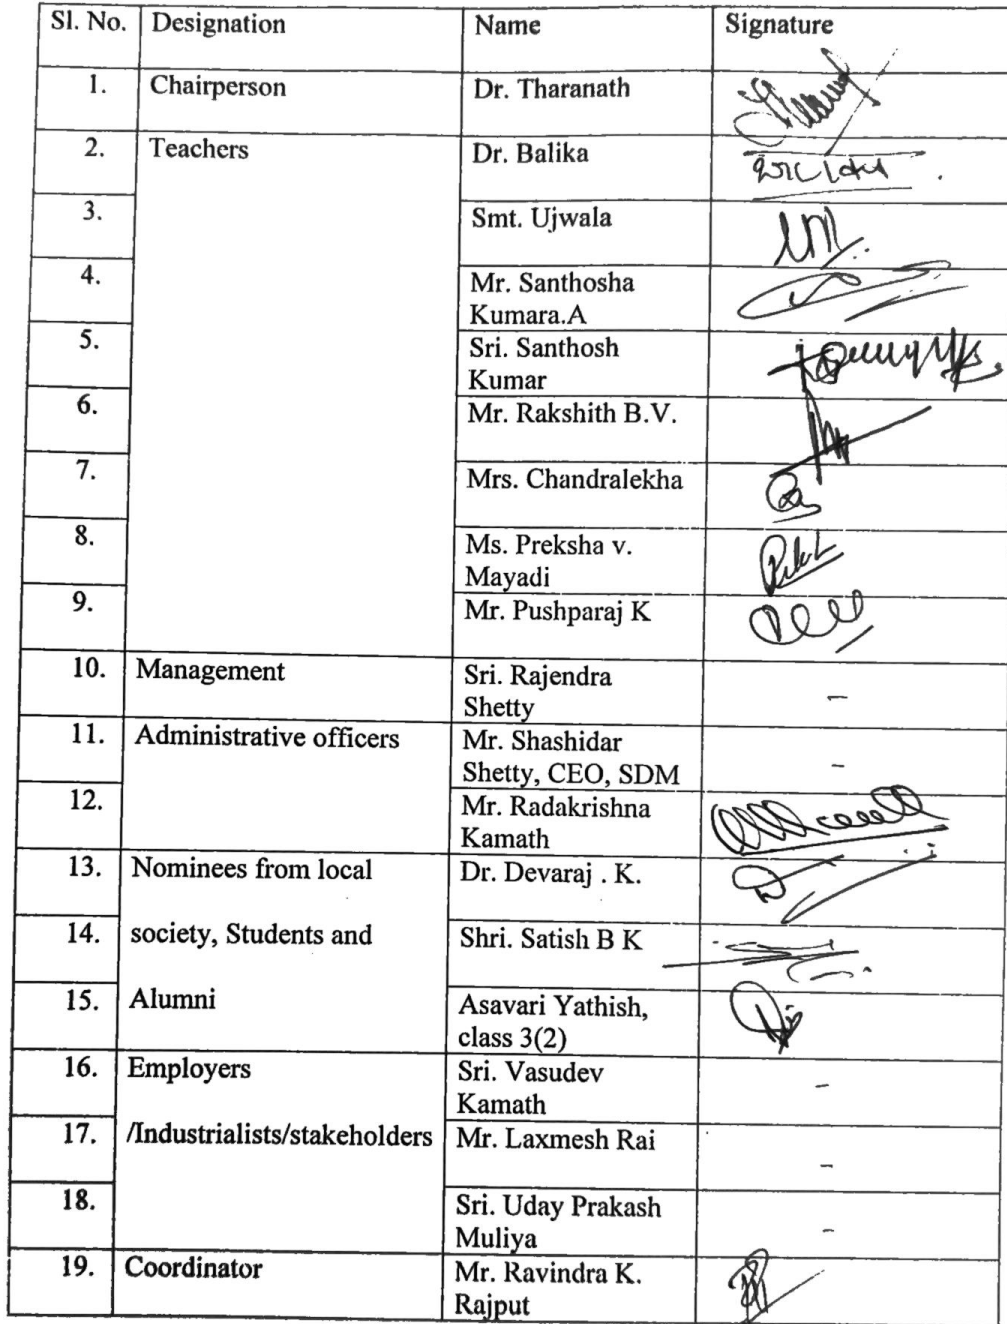 Sl. No. Designation Name Signature
1. Chairperson Dr. Tharanath
2. Teachers Dr. Balika
3. Smt. Ujwala
4. Mr. Santhosha
Kumara.A
5. Sri. Santhosh
Kumar
6. Mr. Rakshith B.V.
7. Mrs. Chandralekha
8. Ms. Preksha v.
Mayadi
9. Mr. Pushparaj K
10. Management Sri. Rajendra
Shetty -
11. Administrative officers Mr. Shashidar
Shetty, CEO, SDM -
12. Mr. Radakrishna
Kamath
13. Nominees from local Dr. Devaraj . K.
14. society, Students and Shri. Satish B K
15. Alumni Asavari Yathish,
class 3(2)
16. Employers Sri. Vasudev
Kamath -
17. /Industrialists/stakeholders Mr. Laxmesh Rai -
18. Sri. Uday Prakash
Muliya -
19. Coordinator Mr. Ravindra K.
Rajput